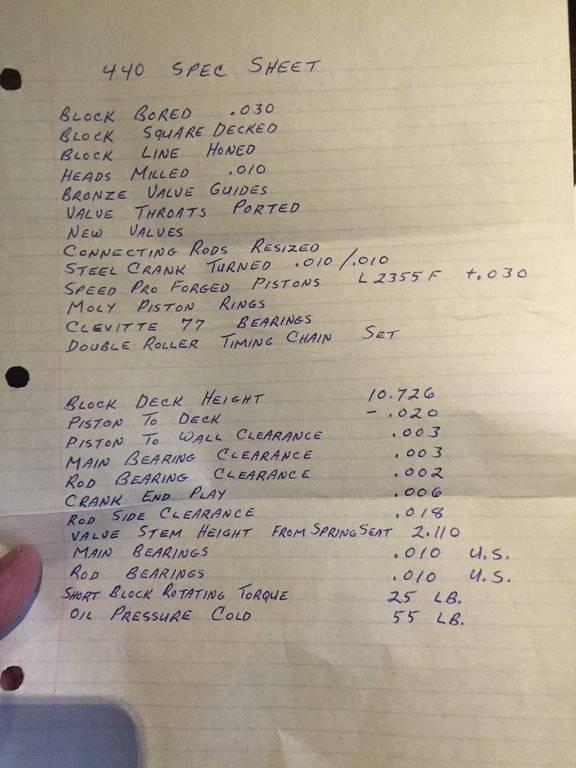 440 SPEC SHEET
BLOCK BORED .030
BLOCK SQUARE DECKED
BLOCK LINE HONED
HEADS MILLED .010
BRONZE VALVE GUIDES
VALVE THROATS PORTED
NEW VALVES
CONNECTING RODS RESIZED
STEEL CRANK TURNED .010/.010
SPEED PRO FORGED PISTONS L2355F +.030
MOLY PISTON RINGS
CLEVITTE 77 BEARINGS
DOUBLE ROLLER TIMING CHAIN SET
BLOCK DECK HEIGHT 10.726
PISTON TO DECK -.020
PISTON TO WALL CLEARANCE .003
MAIN BEARING CLEARANCE .003
ROD BEARING CLEARANCE .002
CRANK END PLAY .006
ROD SIDE CLEARANCE .018
VALVE STEM HEIGHT FROM SPRING SEAT 2.110
MAIN BEARINGS .010 U.S.
ROD BEARINGS .010 U.S.
SHORT BLOCK ROTATING TORQUE 25 LB.
OIL PRESSURE COLD 55 LB.